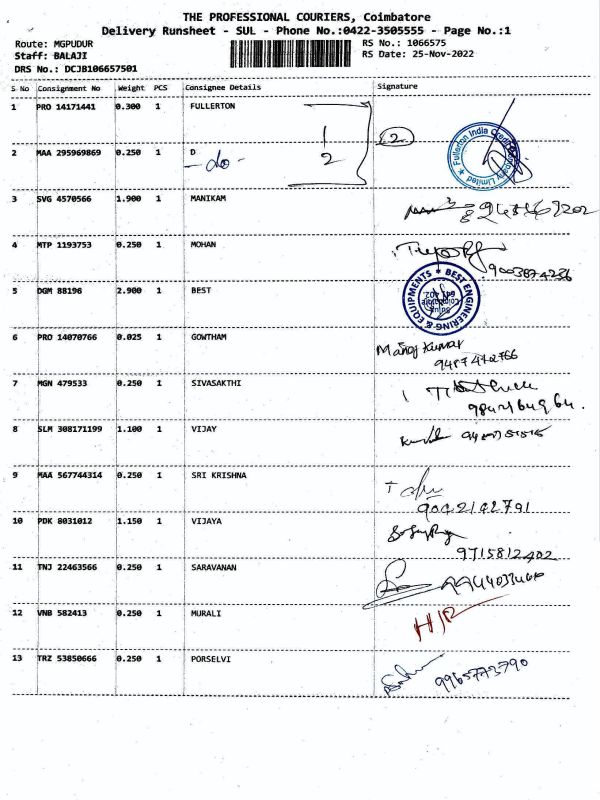 THE PROFESSIONAL COURIERS, Coimbatore
Delivery Runsheet - SUL - Phone No.:0422-3505555 - Page No.:1
Route: MGPUDUR
RS No.: 1066575
Staff: BALAJI
RS Date: 25-Nov-2022
DRS No.: DCJB106657501
S No Consignment No Weight PCS Consignee Details Signature
1 PRO 14171441 0.300 1 FULLERTON
1
2 MAA 295969869 0.250 1 D
- do - 2
2
Fullerton India Credit Company Limited
3 SVG 4570566 1.900 1 MANIKAM
4 MTP 1193753 0.250 1 MOHAN
9003874236
5 DGM 88196 2.900 1 BEST
BEST ENGINEERING & EQUIPMENTS
6 PRO 14070766 0.025 1 GOWTHAM
Manoj Kumar
9487472766
7 MGN 479533 0.250 1 SIVASAKTHI
8 SLM 308171199 1.100 1 VIJAY
9 MAA 567744314 0.250 1 SRI KRISHNA
9042142791
10 PDK 8031012 1.150 1 VIJAYA
9715812402
11 TNJ 22463566 0.250 1 SARAVANAN
12 VNB 582413 0.250 1 MURALI
H/R
13 TRZ 53850666 0.250 1 PORSELVI
9965773790